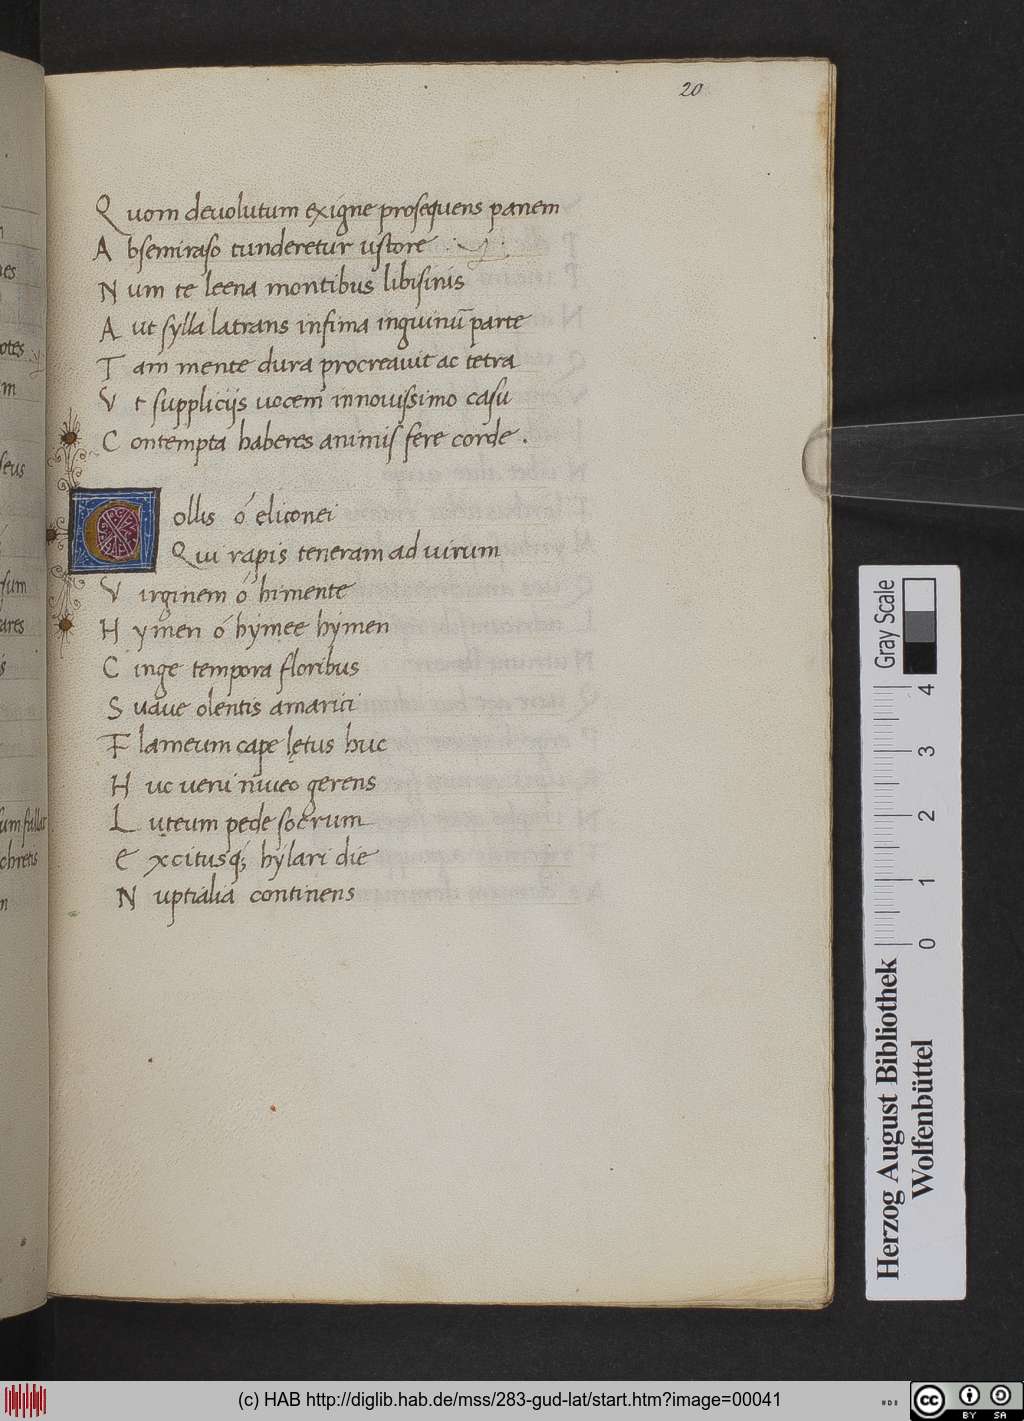 20
Quom deuolutum exigne prosequens panem
Absemiraso tunderetur ustore
Num te leena montibus libisinis
Aut sylla latrans infima inguinū parte
Tam mente dura procreauit ac tetra
Vt suppliciis uocem innouissimo casu
Contempta haberes animis fere corde .
Collis ó eliconei
Qui rapis teneram ad uirum
Virginem ó himente
Hymen ó hymee hymen
Cinge tempora floribus
Suaue olentis amarici
Flameum cape lętus huc
Huc ueni niueo gerens
Luteum pede socrum
Excitusq; hylari die
Nuptialia continens
Gray Scale
0 1 2 3 4
Herzog August Bibliothek
Wolfenbüttel
(c) HAB http://diglib.hab.de/mss/283-gud-lat/start.htm?image=00041
cc BY SA